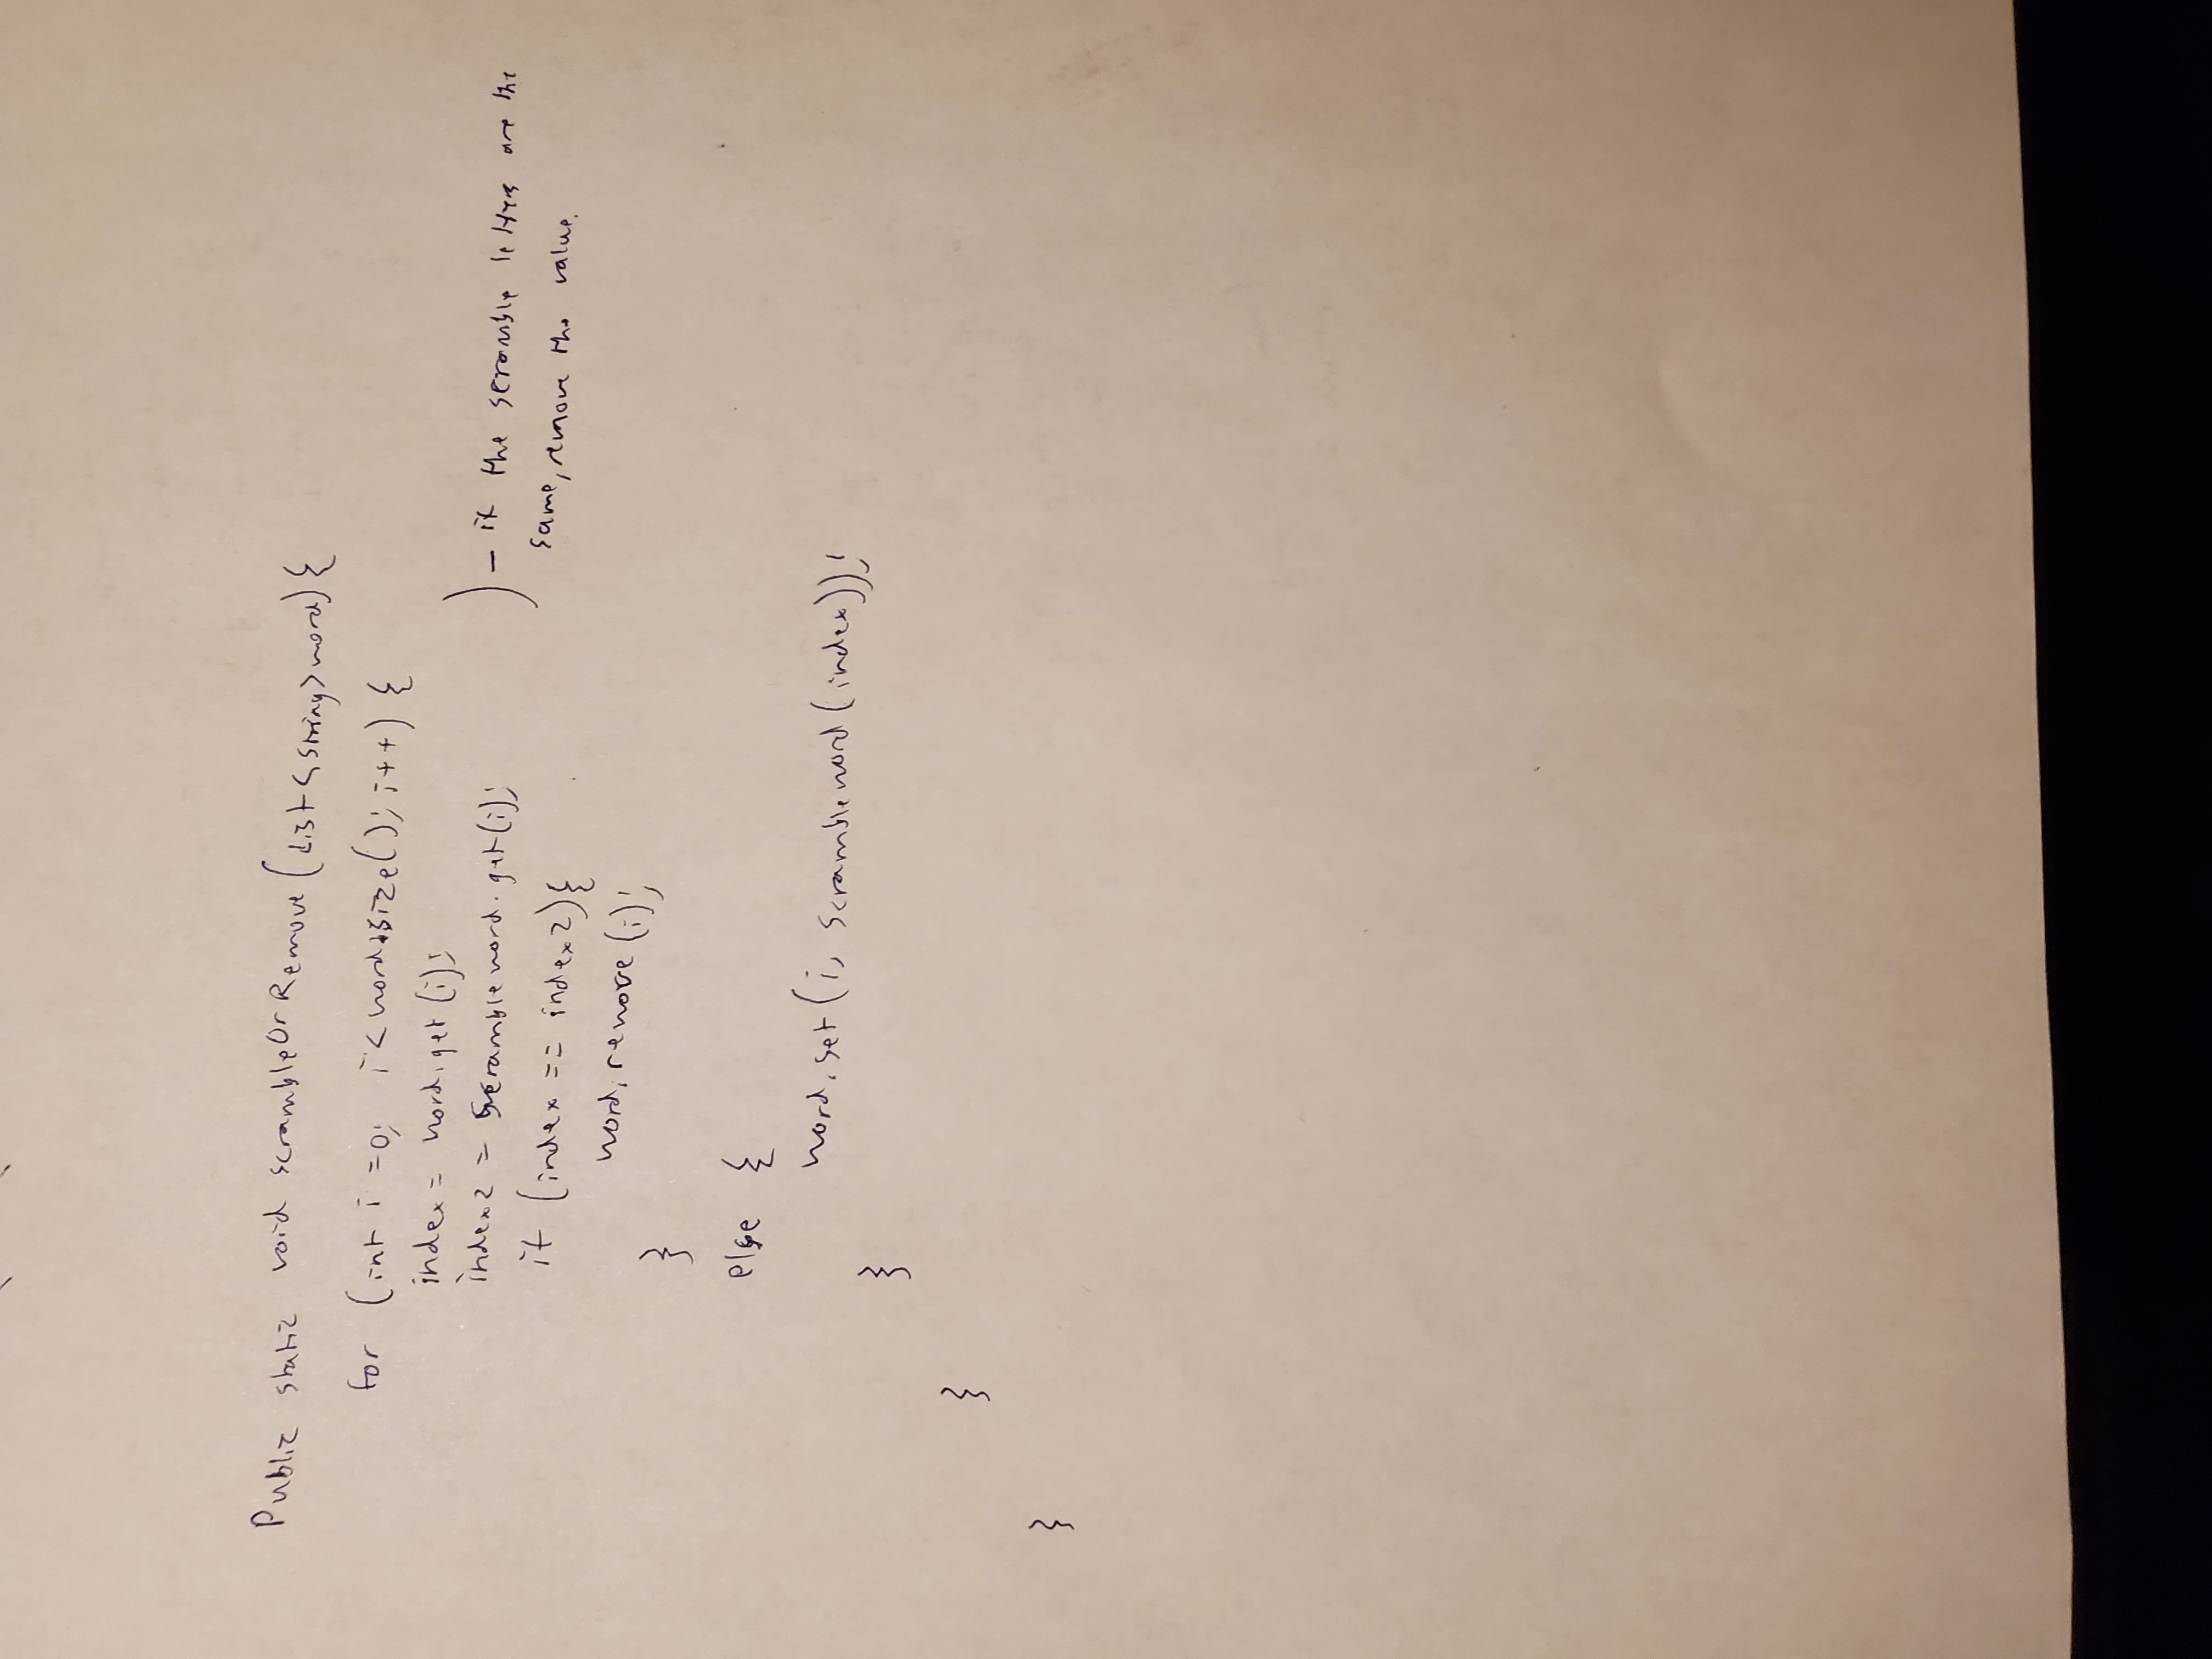 Public static void scrambleOrRemove (List<String> word) {
for (int i =0; i < word.size(); i++) {
index = word.get(i);
index2 = Scrambleword.get(i);
if (index == index2) {
word.remove(i);
}
else {
word.set(i, Scrambleword(index));
}
}
}
) - if the scramble letters are the
same, remove the value.